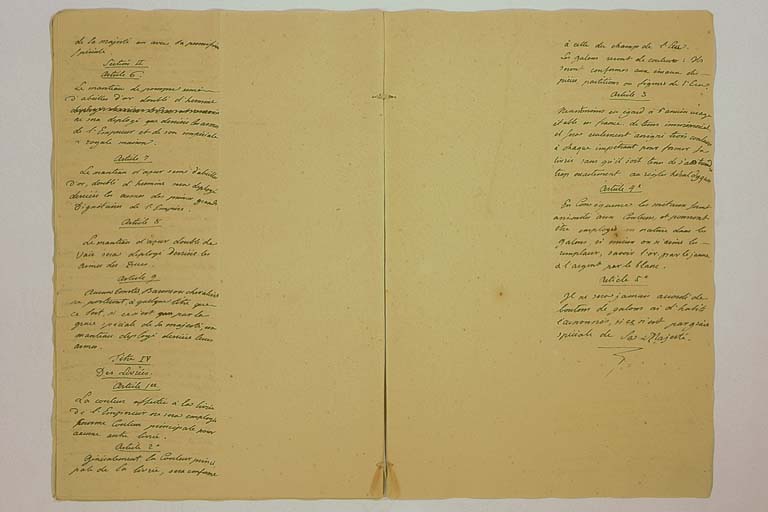 de Sa majesté ou avec sa permission
spéciale
Section II
Article 6.
Le manteau de pourpre semé
d'abeilles d'or doublé d'hermine
ne sera déployé que derrière les armes
de l'Empereur et de son impériale
& royale maison.
Article 7
Le manteau d'azur semé d'abeilles
d'or, doublé d'hermine sera deployé
derrière les armes des princes grands
Dignitaires de l'Empire.
Article 8
Le manteau d'azur doublé de
Vair sera déployé derrière les
armes des Ducs.
Article 9
Aucuns Comtes Barons ou chevaliers
ne porteront, à quelque titre que
ce soit, si ce n'est que par la
grace spéciale de Sa majesté, un
manteau déployé derrière leurs
armes.
Titre IV
Des Livrées.
Article 1er
La couleur affectée à la livrée
de l'Empereur ne sera employée
comme Couleur principale pour
aucune autre livrée.
Article 2e
Généralement la Couleur princi
pale de la livrée, sera conforme
à celle du champs de l'Ecu.
Les galons seront de couleurs : Ils
seront conformes aux émaux des
pièces partitions ou figures de l'Ecu
Article 3
Néanmoins eu égard à l'ancien usage
établi en france de tems immémorial,
il sera seulement assigné trois couleurs
à chaque impétrant pour former sa
livrée sans qu'il soit tenu de s'astreindre
trop exactement aux règles héraldiques
Article 4e
En Conséquence les métaux seront
assimilés aux Couleurs et pourront
être employés en nature dans les
galons, si mieux on n'aime les
remplacer, savoir l'or, par le jaune
& l'argent par le blanc.
Article 5e
Il ne sera jamais accordé de
boutons de galons ni d'habit
armoriés, si ce n'est par grâce
spéciale de Sa Majesté.